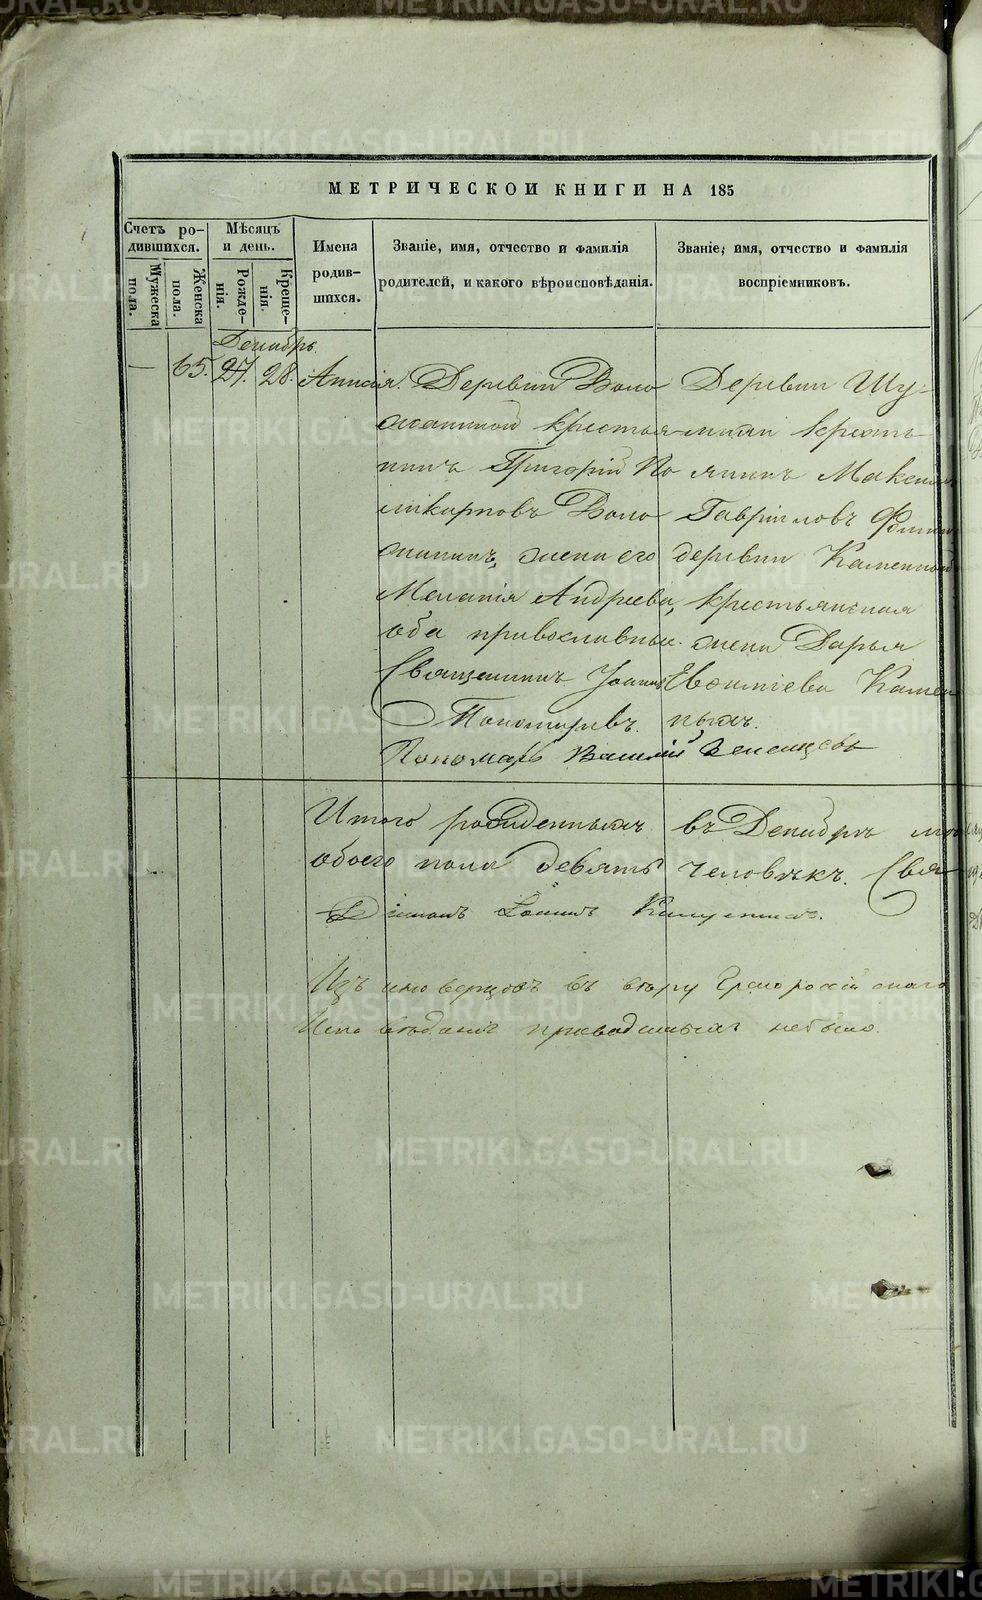 МЕТРИЧЕСКОЙ КНИГИ НА 185
Счетъ родившихся.
Мужеска пола.
Женска пола.
Мѣсяцъ и день.
Рожденія.
Крещенія.
Имена родившихся.
Званіе, имя, отчество и фамилія родителей, и какого вѣроисповѣданія.
Званіе, имя, отчество и фамилія воспріемниковъ.
Декабрь.
— 65. 27. 28. Анисія.
Деревни Воло
крестья
нинъ Григорій По
ликарповъ Воло
жена его
Меланія Андреева,
оба православные.
Священникъ Іоаннъ
Пономаревъ.
Пономарь Василій
Деревни Шу
крестья
нинъ Максимъ
Гавріиловъ
деревни Каменной
крестьянская
жена Дарья
Евфиміева Камен
ныхъ.
Итого рожденныхъ въ Декабрѣ
обоего пола девять человѣкъ. Свя
Діаконъ
Изъ иновѣрцовъ въ вѣру Грекороссійскаго
Исповѣданія приводимыхъ небыло.
METRIKI.GASO-URAL.RU